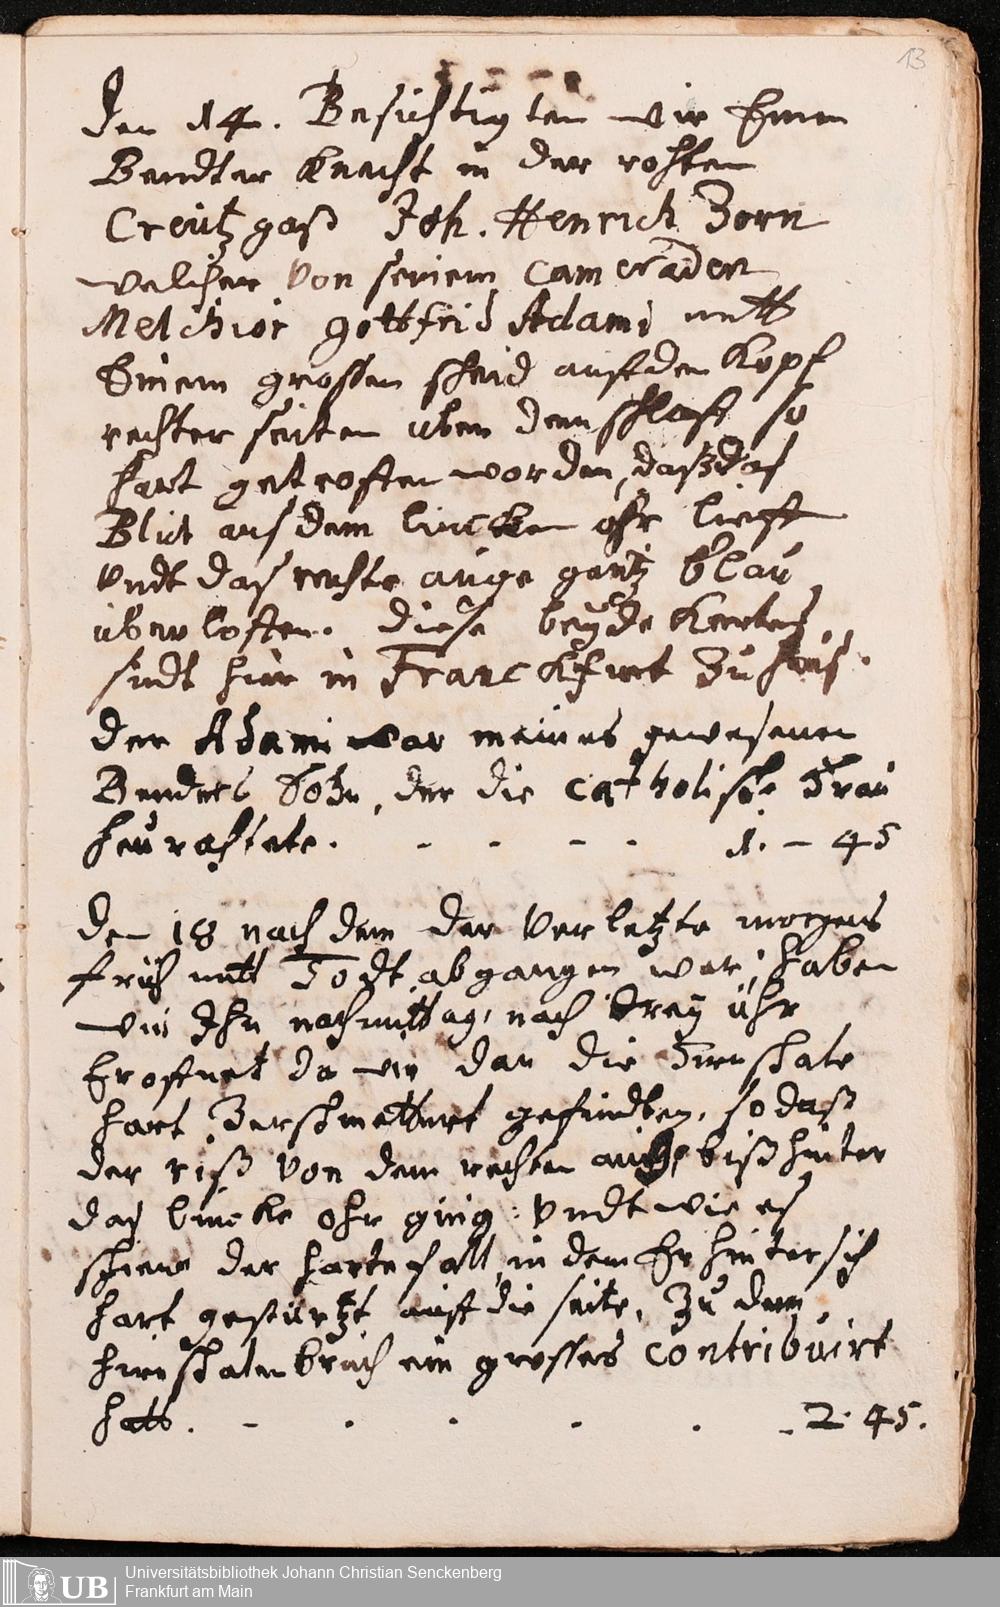 13
den 14. Besichtigten wir Einen
Bendter Knecht in der rohten
Creutzgaß Joh. Henrich Zorn
welcher von seinem Cameraden
Melchior gottfrid Adami mitt
Einem grossen scheid auff den Kopf
rechter seiten uben dem schlaff so
hart getroffen worden, daß das
Blut aus dem lincken ohr lieff
Vndt das rechte auge gantz blau
überloffen. diese beyde Kerles
sindt hier in Franckfurt zu haus.
der Adami war meines gewesenen
Benders Sohn, der die catholische Frau
heurahtete. - - - - 1. - 45
Den 18 nach dem der Verletzte morgens
früh mitt Todt abgangen war, haben
wir Ihn nachmittag, nach drey Uhr
Eroffnet da wir dan die Hirnschale
hart Zerschmettert gefunden, so daß
der riß von dem rechten auge, biß hinter
das lincke ohr ging: Vndt wie es
schiene der harte fall, in dem Er hinter sich
hart gestürtzt auff die seite, Zu dem,
hirnschalen bruch ein grosses contribuirt
hatt. - . . . . - 2. 45.
Universitätsbibliothek Johann Christian Senckenberg
UB Frankfurt am Main